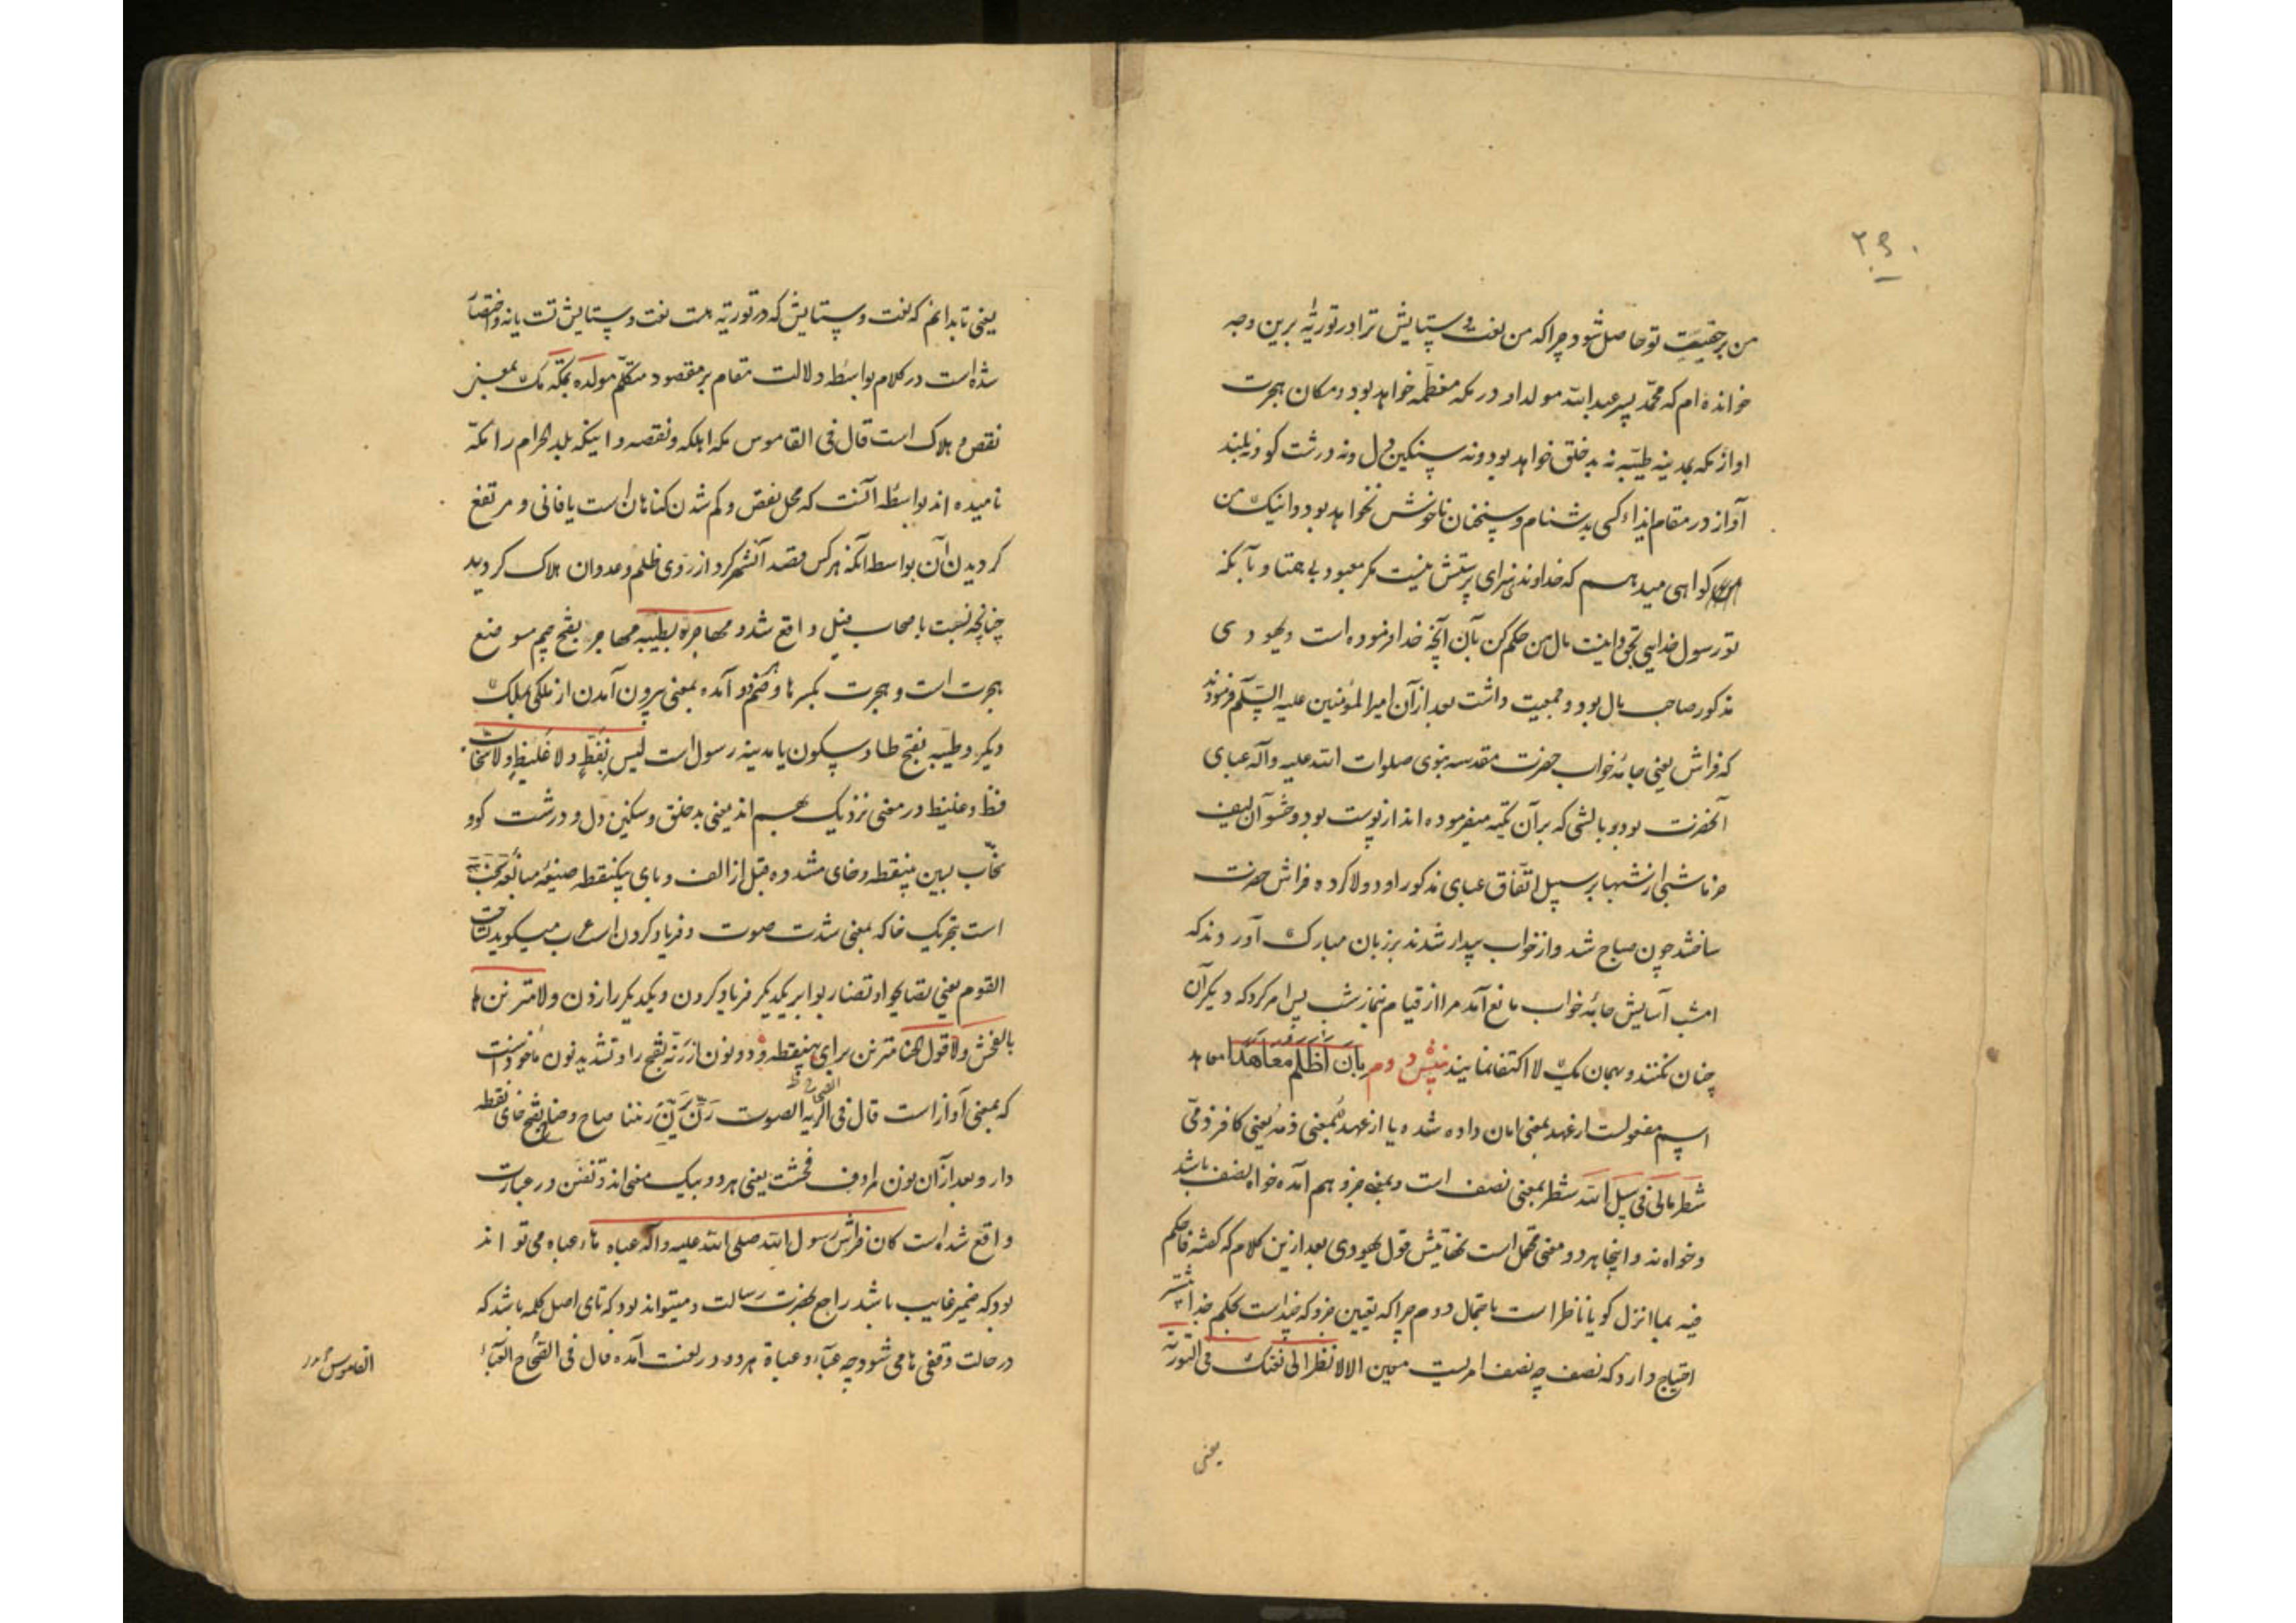 ۲۹۰
من بر حقیقت تو حاصل شود چرا که من نعت و ستایش ترا در توریة برین وجه
خوانده ام که محمّد پسر عبدالله مولد او در مکه معظّمه خواهد بود و مکان هجرت
او از مکه بمدینه طیّبه نه بد خلق خواهد بود و نه سنکین دل و نه درشت کو و نه بلند
آواز در مقام ایذاء کسی بدشنام و سخنان ناخوش نخواهد بود و اینک من
کواهی میدهم که خداوندی سزای پرستش نیست مکر معبود بی همتا و بآنکه
تو رسول خدایی بحق و اینست مال من حکم کن بآن آنچه خدا فرموده است و یهودی
مذکور صاحب مال بود و جمعیت داشت بعد از آن امیر المؤمنین علیه السّلم فرمودند
که فراش یعنی جامهٔ خواب حضرت مقدسه نبوی صلوات الله علیه و آله عبای
آنحضرت بود و بالشی که بر آن تکیه میفرموده اند از پوست بود و حشو آن لیف
خرما شبی از شبها بر سبیل اتّفاق عبای مذکور را دو لا کرده فراش حضرت
ساختند چون صباح شد و از خواب بیدار شدند بر زبان مبارک آوردند که
امشب آسایش جامهٔ خواب مانع آمد مرا از قیام نماز شب پس امر کرد که دیکر آن
چنان نکنند و بهمان یک لا اکتفا نمایند بان اظلم معاهدا معاهد
اسم مفعولست از عهد بمعنی امان داده شده یا از عهد بمعنی ذمه یعنی کافر ذمّی
شطر مالی فی سبیل الله شطر بمعنی نصف است و بمعنی جزو هم آمده خواه نصف باشد
و خواه نه و اینجا هر دو معنی محتمل است نهایتش قول یهودی بعد ازین کلام که کفته فاحکم
فیه بما انزل الله کویا ناظر است باحتمال دوم چرا که تعیین جزو که چند است بحکم خدا بیشتر
احتیاج دارد که نصف چه نصف امریست معین الا لانظر الی نعتک فی التوریة
یعنی
یعنی تا بدانم که نعت و ستایش که در توریة هست نعت و ستایش تست یا نه و اختصار
شده است در کلام بواسطه دلالت مقام بر مقصود متکلّم مولده بمکّه مک بمعنی
نقص و هلاک است قال فی القاموس مکه اهلکه و نقصه و اینکه بلد الحرام را مکّه
نامیده اند بواسطهٔ آنست که محل نقص و کم شدن کناهان است یا فانی و مرتفع
کردیدن آن بواسطه آنکه هر کس قصد آن شهر کرد از روی ظلم و عدوان هلاک کردید
چنانچه نسبت باصحاب فیل واقع شد و مهاجره بطیبه مهاجر بفتح جیم موضع
هجرت است و هجرت بکسر ها و ضم هر دو آمده بمعنی بیرون آمدن از ملکی بملک
دیکر و طیّبه بفتح طا و سکون یا مدینه رسول است لیس بفظّ و لا غلیظ و لا سخّاب
فظّ و غلیظ در معنی نزدیک بهم اند یعنی بد خلق و سنکین دل و درشت کو و
سخّاب بسین بینقطه و خای مشدده قبل از الف و بای یکنقطه صیغهٔ مبالغه سخب
است بتحریک خا که بمعنی شدت صوت و فریاد کردن است عرب میکوید تساخب
القوم یعنی تصایحوا و تضاربوا بر یکدیکر فریاد کردن و یکدیکر را زدن و لا مترنن
بالفحش و لا قول الخنا مترنن برای بینقطه و دو نون از رنّه بفتح را و تشدید نون ماخوذ است
که بمعنی آواز است قال فی الصحاح الرنه الصوت رنّ یرنّ رننا صاح و خنا بفتح خای نقطه
دار و بعد از آن نون مرادف فحش است یعنی هر دو بیک معنی اند و تفنّن در عبارت
واقع شده است کان فراش رسول الله صلی الله علیه و آله عباه هاء عباه می تواند
بود که ضمیر غایب باشد راجع بحضرت رسالت و میتواند بود که تای اصل کلمه باشد که
در حالت وقفی ها می شود چه عبآء و عباة هر دو در لغت آمده قال فی الصّحاح العبآء
القاموس